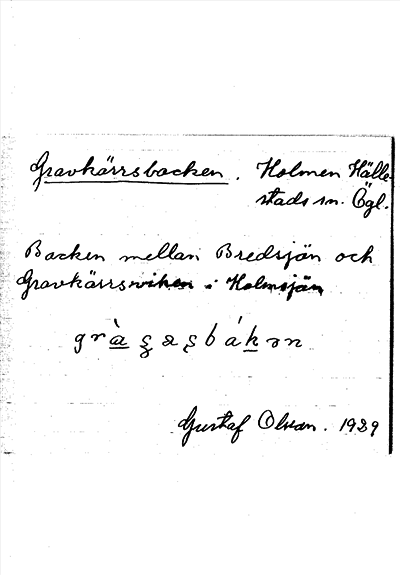 Gravkärrsbacken. Holmen Hälle-
stads sn. Ögl.
Backen mellan Bredsjön och
Gravkärrsviken i Holmsjön
Gustaf Olsson. 1929